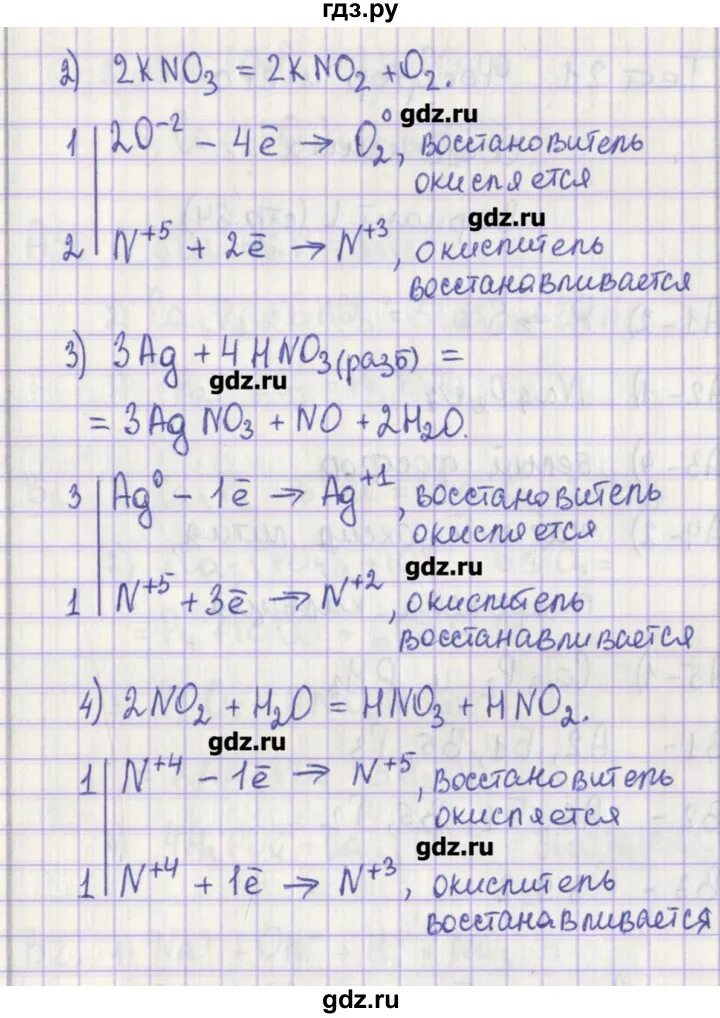 гдз.ру
2) 2KNO₃ = 2KNO₂ + O₂.
gdz.ru
1 | 2O⁻² – 4ē → O₂⁰, восстановитель
окисляется
gdz.ru
2 | N⁺⁵ + 2ē → N⁺³, окислитель
восстанавливается
3) 3Ag + 4HNO₃(разб) =
gdz.ru
= 3AgNO₃ + NO + 2H₂O.
3 | Ag⁰ – 1ē → Ag⁺¹, восстановитель
окисляется
gdz.ru
1 | N⁺⁵ + 3ē → N⁺², окислитель
восстанавливается
4) 2NO₂ + H₂O = HNO₃ + HNO₂.
gdz.ru
1 | N⁺⁴ – 1ē → N⁺⁵, восстановитель
окисляется
gdz.ru
1 | N⁺⁴ + 1ē → N⁺³, окислитель
восстанавливается
gdz.ru